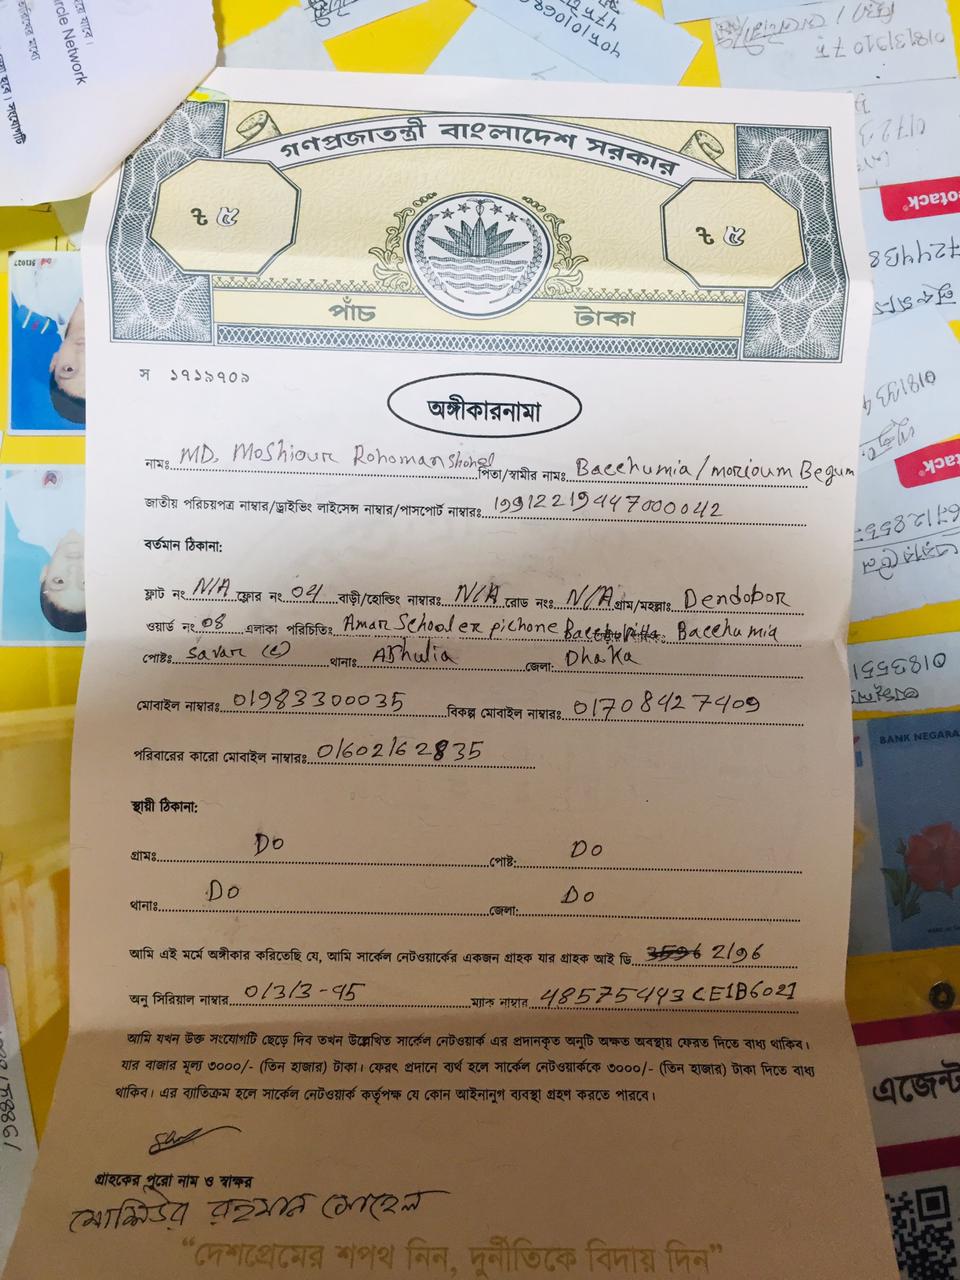 গণপ্রজাতন্ত্রী বাংলাদেশ সরকার
৳ ৫ ৳ ৫
পাঁচ টাকা
স ১৭১৯৭০৯
অঙ্গীকারনামা
নামঃ MD. Moshiour Rohoman Shohel পিতা/স্বামীর নামঃ Bacchumia/morioum Begum
জাতীয় পরিচয়পত্র নাম্বার/ড্রাইভিং লাইসেন্স নাম্বার/পাসপোর্ট নাম্বারঃ 19912219447000042
বর্তমান ঠিকানা:
ফ্লাট নং N/A ফ্লোর নং 04 বাড়ী/হোল্ডিং নাম্বারঃ N/A রোড নংঃ N/A গ্রাম/মহল্লাঃ Dendobor
ওয়ার্ড নং 08 এলাকা পরিচিতিঃ Aman School er pichone Bacchumia
পোষ্টঃ Savar (c) থানাঃ Ashulia জেলা: Dhaka
মোবাইল নাম্বারঃ 01983300035 বিকল্প মোবাইল নাম্বারঃ 01708427409
পরিবারের কারো মোবাইল নাম্বারঃ 01602162835
স্থায়ী ঠিকানা:
গ্রামঃ Do পোষ্ট: Do
থানাঃ Do জেলা: Do
আমি এই মর্মে অঙ্গীকার করিতেছি যে, আমি সার্কেল নেটওয়ার্কের একজন গ্রাহক যার গ্রাহক আই ডি 2196
অনু সিরিয়াল নাম্বার 01313-95 ম্যাক নাম্বার 48575443CE1B6021
আমি যখন উক্ত সংযোগটি ছেড়ে দিব তখন উল্লেখিত সার্কেল নেটওয়ার্ক এর প্রদানকৃত অনুটি অক্ষত অবস্থায় ফেরত দিতে বাধ্য থাকিব।
যার বাজার মূল্য ৩০০০/- (তিন হাজার) টাকা। ফেরৎ প্রদানে ব্যর্থ হলে সার্কেল নেটওয়ার্ককে ৩০০০/- (তিন হাজার) টাকা দিতে বাধ্য
থাকিব। এর ব্যতিক্রম হলে সার্কেল নেটওয়ার্ক কর্তৃপক্ষ যে কোন আইনানুগ ব্যবস্থা গ্রহণ করতে পারবে।
গ্রাহকের পুরো নাম ও স্বাক্ষর
মোশিউর রহমান সোহেল
“দেশপ্রেমের শপথ নিন, দুর্নীতিকে বিদায় দিন”
ircle Network
BANK NEGARA
এজেন্ট